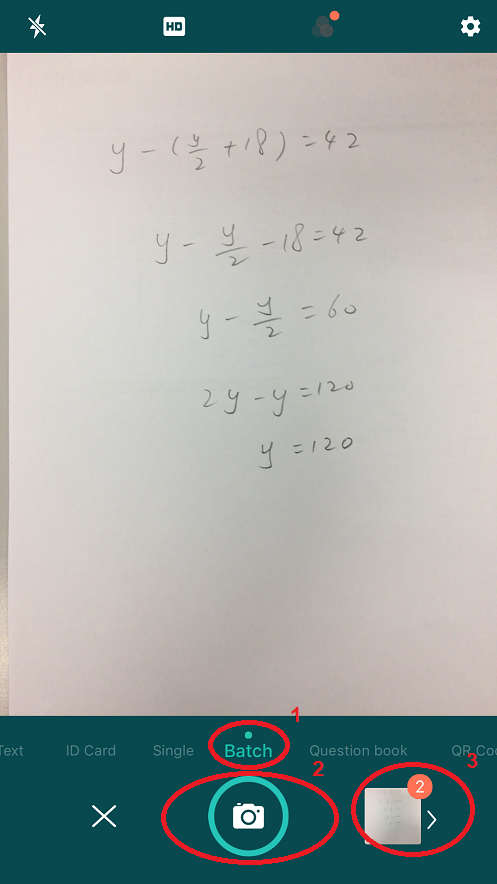 HD
y - (y/2 + 18) = 42
y - y/2 - 18 = 42
y - y/2 = 60
2y - y = 120
y = 120
1
Text ID Card Single Batch Question book QR Co
2 3
2